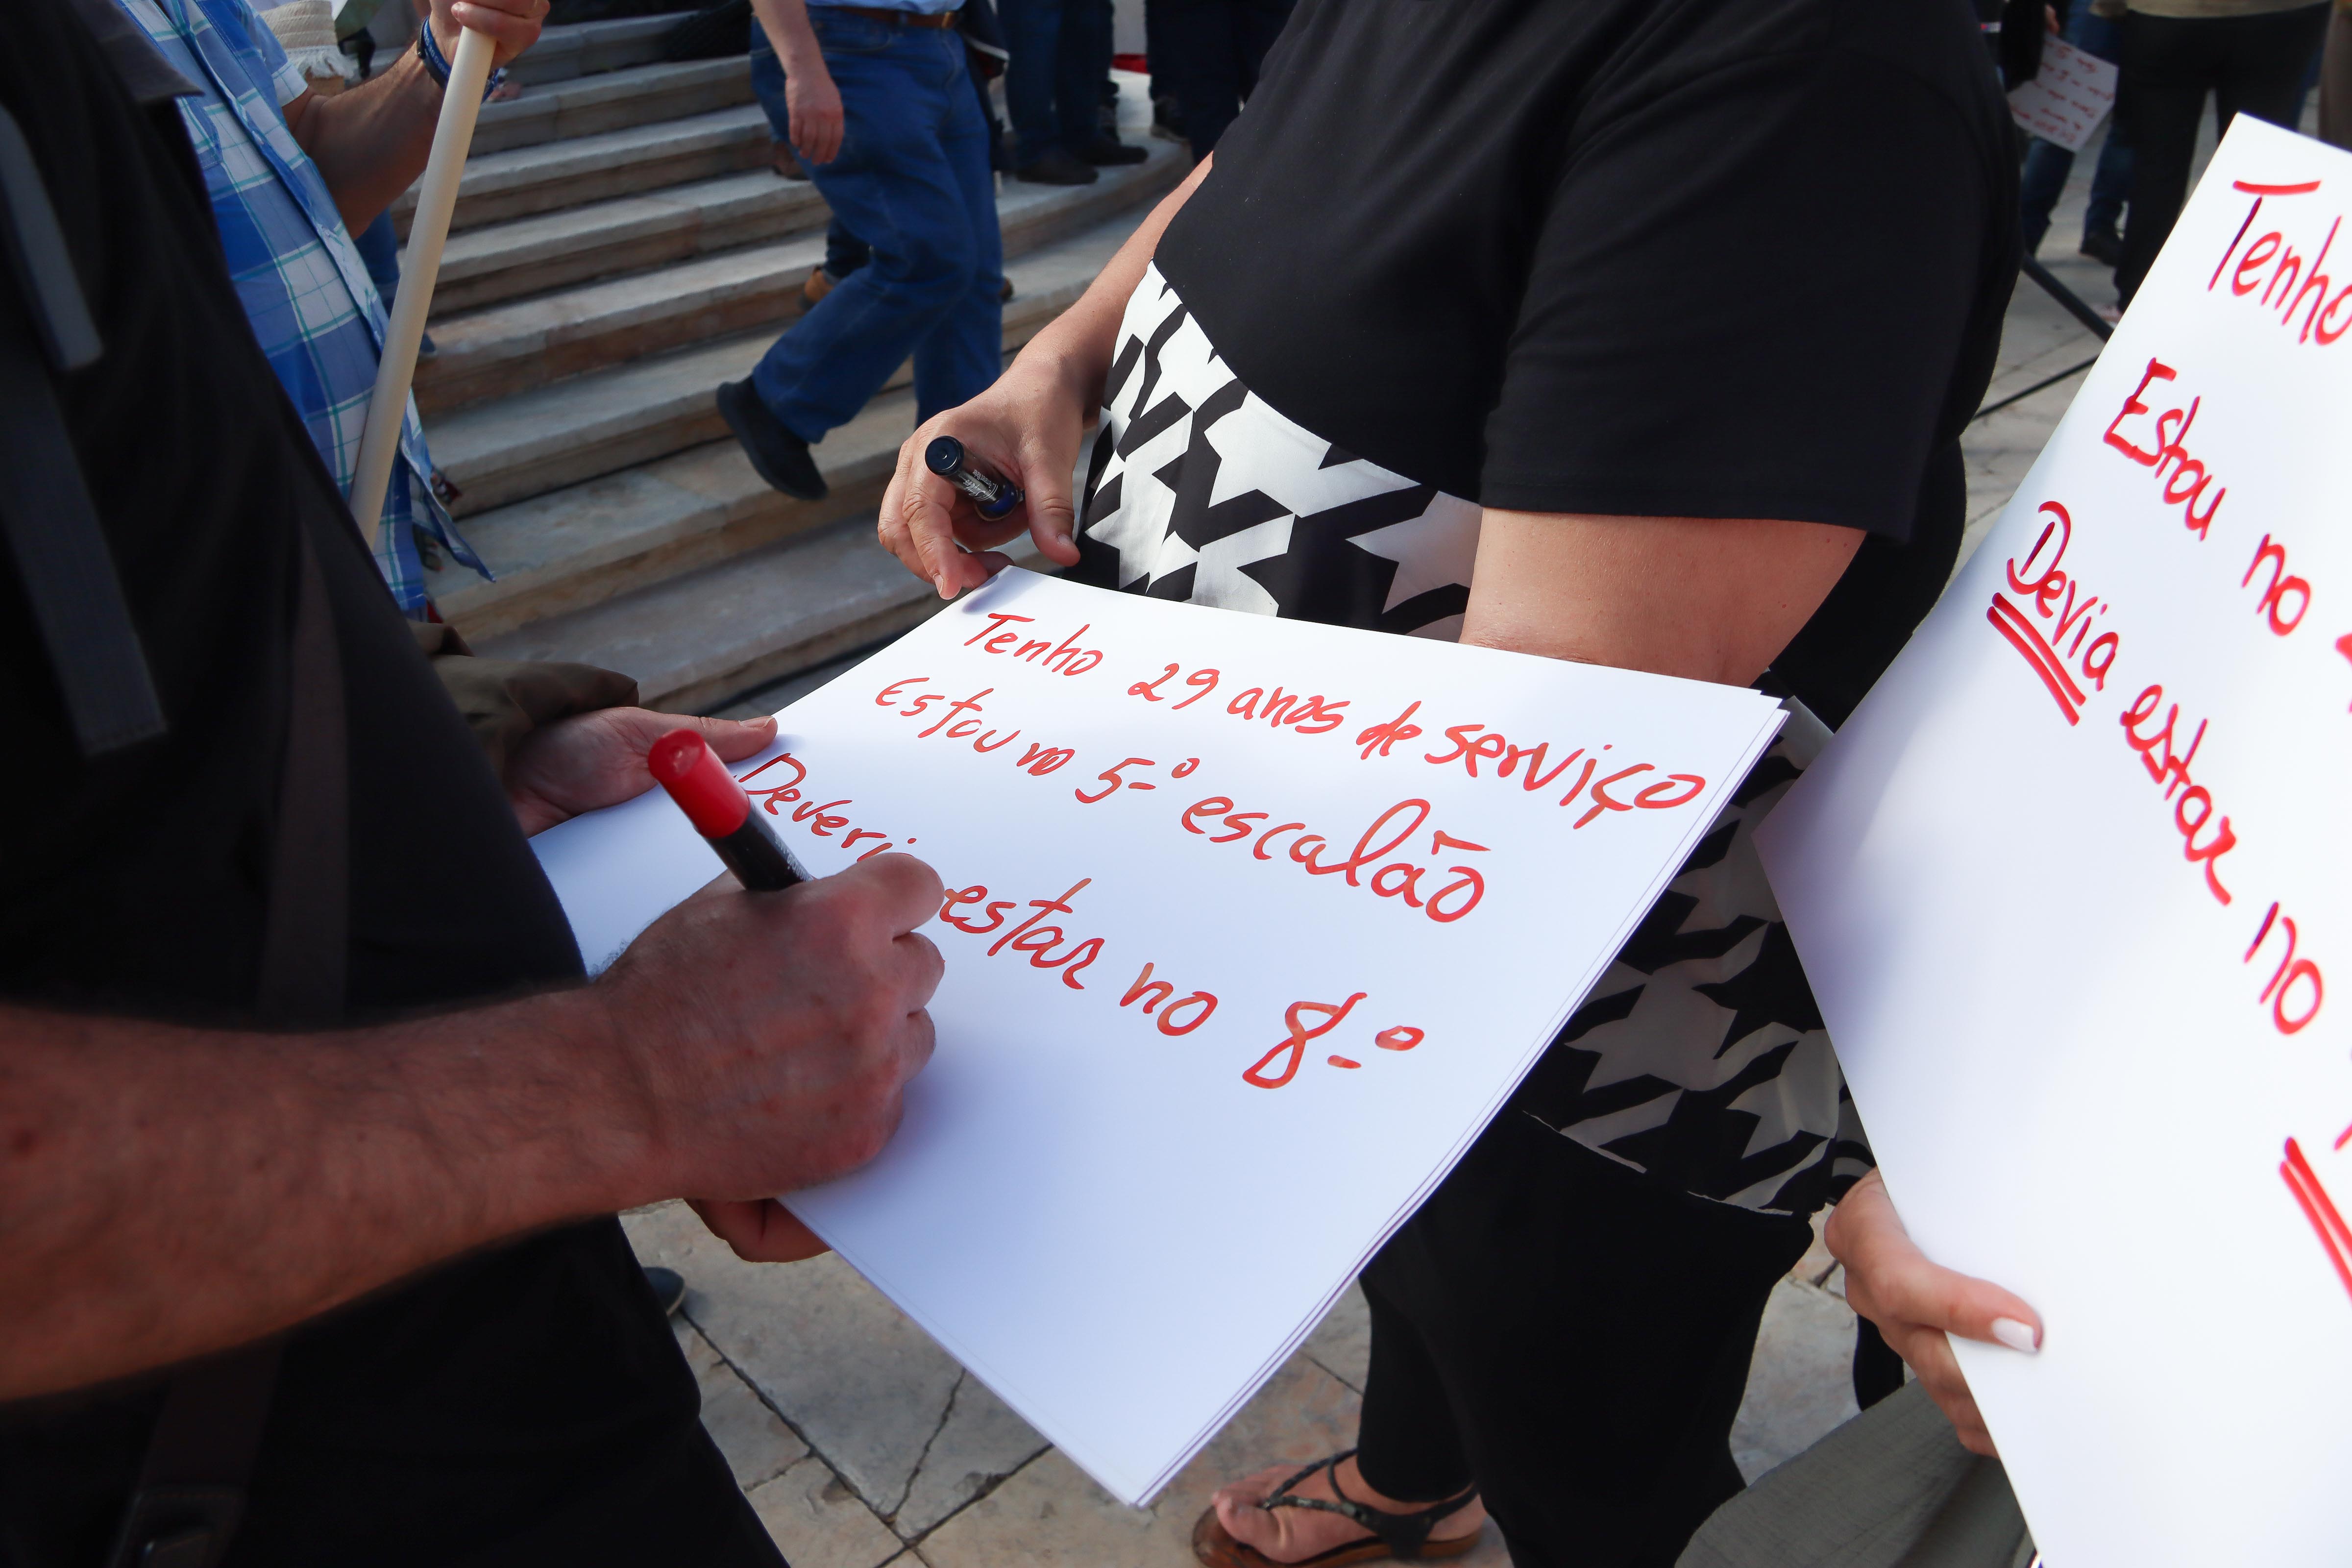 Tenho 29 anos de serviço
Estou no 5.º escalão
Deveria estar no 8.º
Tenho
Estou no
Devia estar no